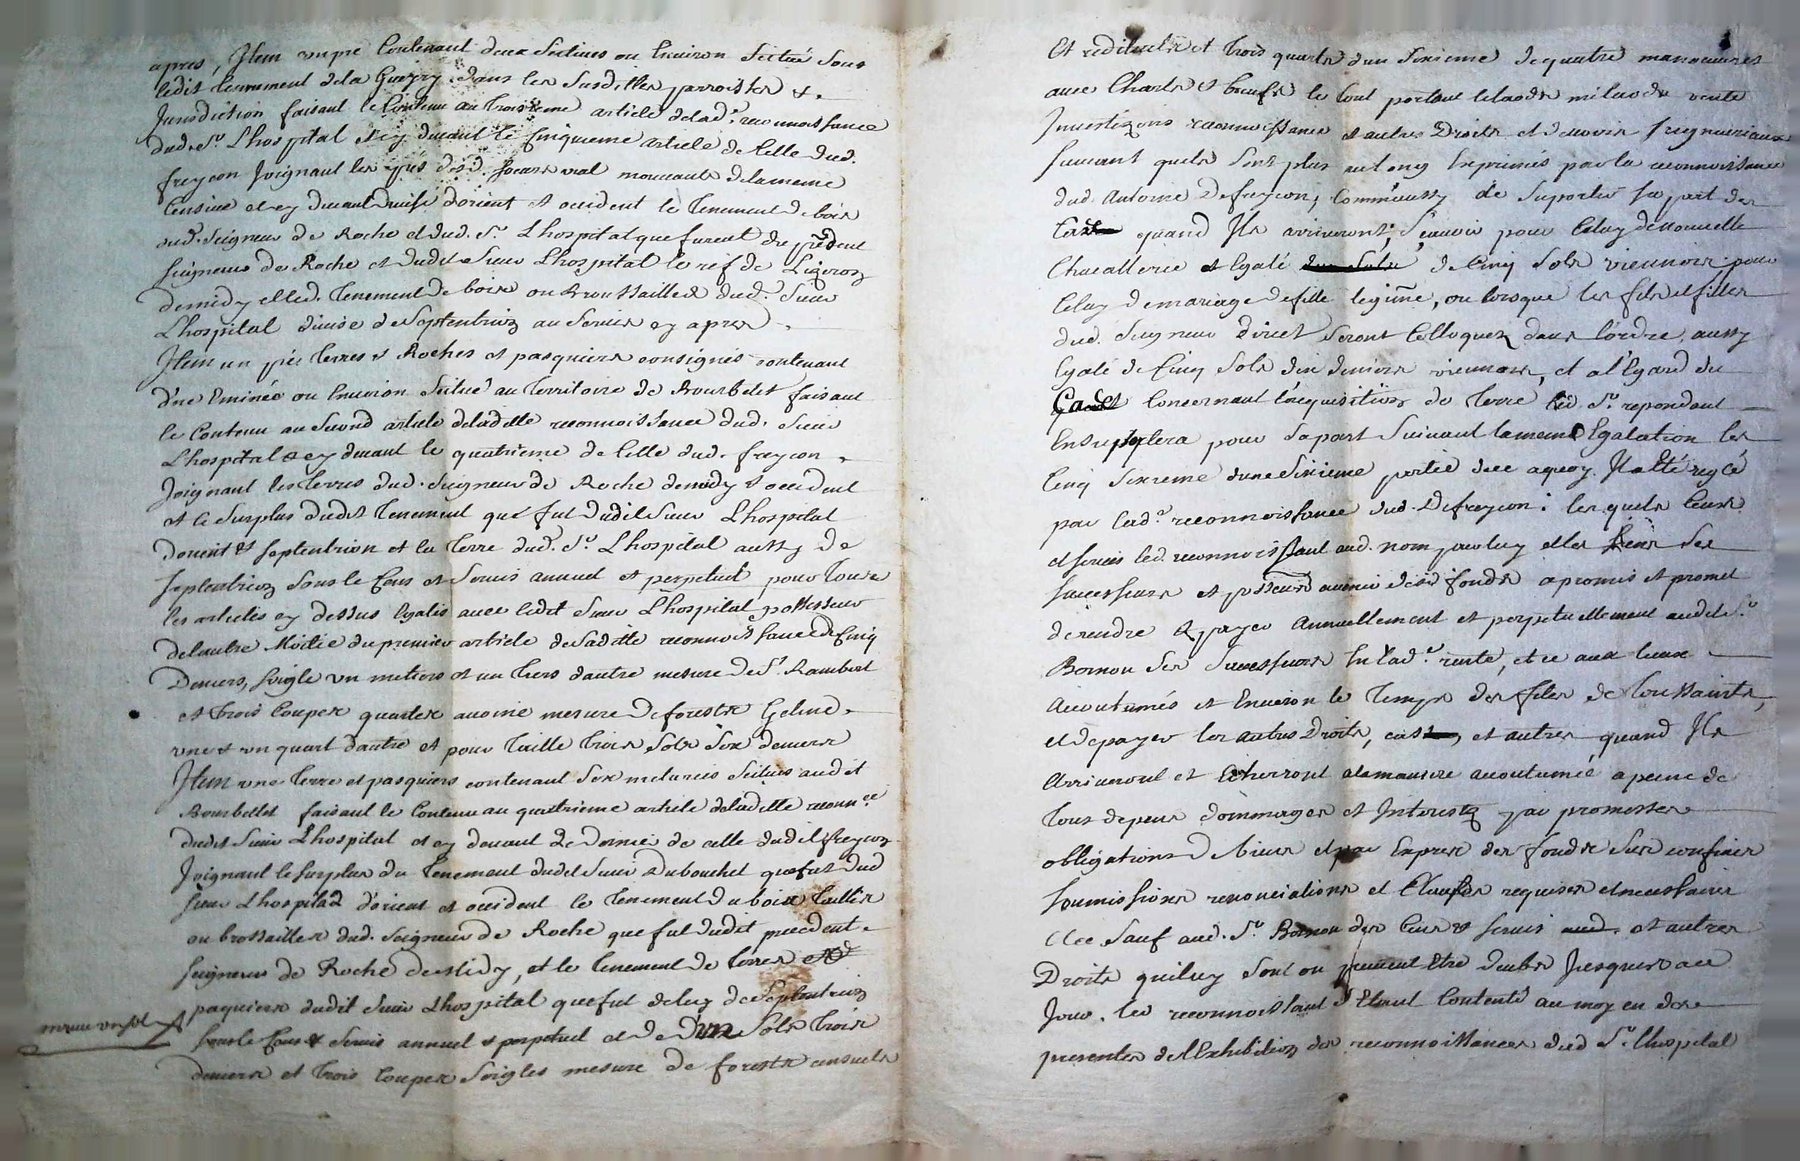 apres, Item un pré Contenant deux Seitives ou Environ Scitué Sous
ledit tennement dela dans les Susdittes parroisses &
Jurisdiction faisant le Contenu au troisieme article delad.e reconnoissance
dud. Sr Lhospital et cy devant le Cinquieme article de Celle dud.
freycon Joignant les prés dud. mouvants delameme
Censive et cy devant divisé dorient et occident le Tenement de bois
dud. Seigneur de Roche et dud. Sr Lhospital que furent du précédent
Seigneur de Roche et dudit Sieur Lhospital le rif de
demidy et led. Tenement de bois ou Broussailles dud. Sieur
Lhospital divise de Septentrion au Servis cy apres
Item un pré Terres & Roches et pasquiers consignés contenant
d'ne Eminée ou Environ Scitué au Territoire de Bourbelet faisant
le Contenu au Second article deladitte reconnoissance dud. Sieur
Lhospital & cy devant le quatrieme de Celle dud. freycon
Joignant les terres dud. Seigneur de Roche demidy & occident
et le Surplus dudit Tenement que fut dudit Sieur Lhospital
dorient & septentrion et la terre dud. Sr Lhospital aussy de
septentrion sous le Cens et Servis annuel et perpetuel pour tous
les articles cy dessus Egalés avec ledit Sieur Lhospital possesseur
delautre Moitié du premier article de sadite reconnoissance de Cinq
Deniers, soigle un metiers et un tiers dautre mesure de St Rambert
et trois Coupes quartes avoine mesure de forests Geline
une & un quart dautre et pour taille trois Sols Six deniers
Item une terre et pasquiers contenant Six Scitués audit
Bourbellet faisant le Contenu au quatrieme article deladitte reconn.ce
dudit Sieur Lhospital et cy devant le dernier de celle dudit freycon
Joignant le surplus du Tenement dudit Sieur Dubouchet que fut dud
sieur Lhospital d'orient et occident le Tenement du bois taillis
ou brossailles dud. Seigneur de Roche que fut dudit précédent
Seigneur de Roche demidy, et le Tenement de terres et
paquiers dudit Sieur Lhospital que fut deluy de Septentrion
sous le Cens & Servis annuel & perpetuel et de d'un Sols trois
deniers et trois Coupes Soigles mesure de forests censuels
Et trois quarts d'un Sixieme de quatre manoeuvres
avec Charts et boeufs le tout portant lelaods milaods vente
Investizons reconnoissance et autres Droits et devoirs seigneuriaux
suivant quils sont plus aulong Exprimés par la reconnoissance
dud. Antoine Defreycon, Comm'aussy de Suporter sa part des
quand Ils arriveront; Sçavoir pour Celuy de nouvelle
Chevallerie et Egalé de Cinq Sols viennois pour
Celuy de mariage de fille legitime, ou lorsque les fils et filles
dud. Seigneur direct seront Colloquez dans l'ordre, aussy
Egalé de Cinq Sols dix deniers viennois, et al'Egard du
Cas Concernant l'acquisition de Terre led Sr repondant
En supplera pour Sa part Suivant lameme Egalation les
Cinq Sixieme d'une Sixieme partie a quoy Ila été reglé
par lad.e reconnoissance dud. Defreycon: les quels Cens
et servis led. reconnoissant aud. nom pour luy et les siens Ses
Successeurs et possesseurs avenir desd fonds a promis et promet
de rendre & payer Annuellement et perpetuellement audit Sr
Bornou Ses Successeurs En lad.e rente, et ce aux lieux
Accoutumés et Environ le Temps des fetes de Toussaints,
et de payer les autres Droits, cas et autres quand Ils
Arriveront et Echerront alamaniere accoutumée apeine de
tous depens dommages et Interests par promesses
obligations de biens et par Exprés des fonds Sus confinés
Soumissions renonciations et Clauses requises et necessaires
&ce. Sauf aud. Sr Bornou des Cens & servis et autres
Droits quiluy sont ou peuvent Etre deubs Jusques ace
Jour. led reconnoissant S'Etant Contenté au moyen des
presentes de l'Exhibition des reconnoissances dud Sr Lhospital